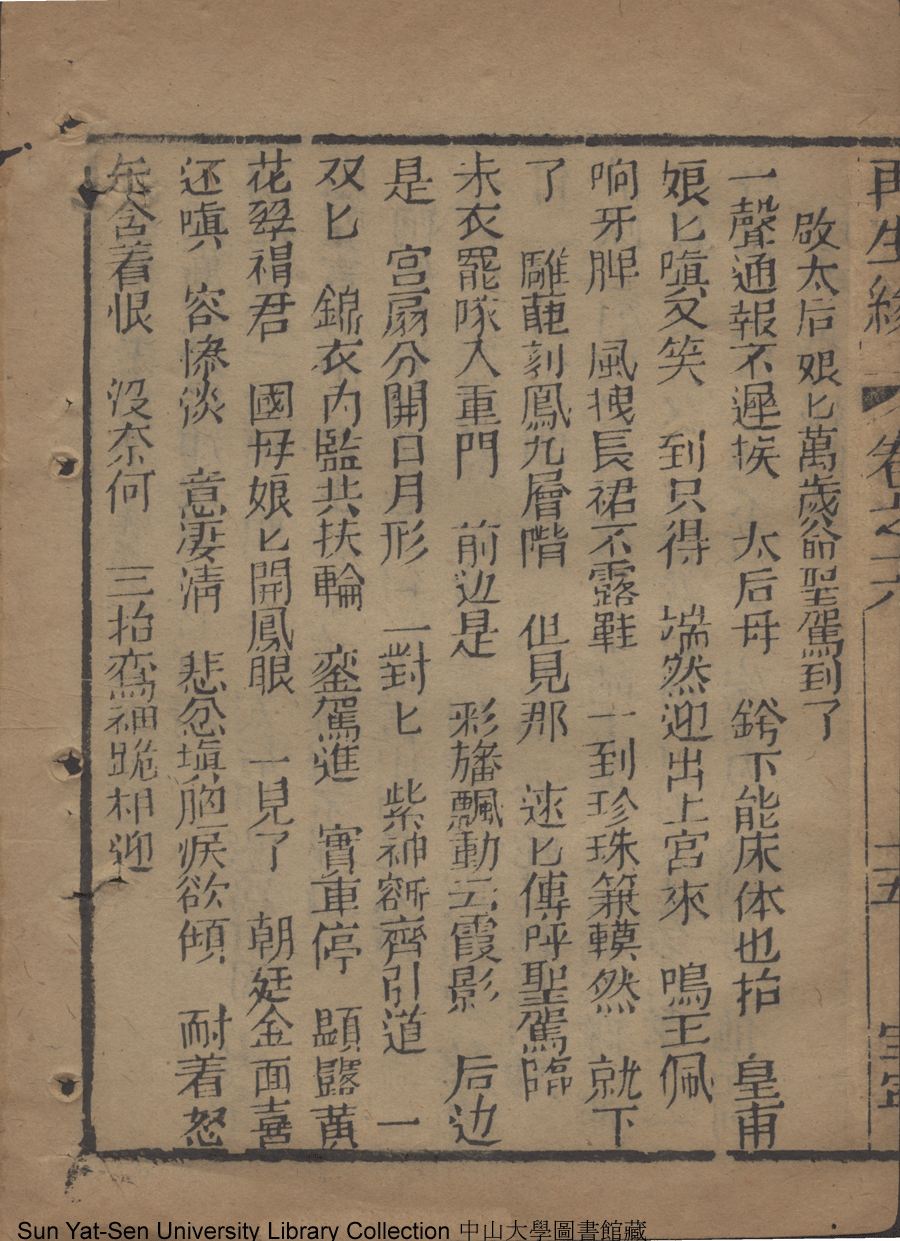 再生緣 卷之六 十五
啟太后娘匕萬歲爺聖駕到了
一聲通報不遲挨 太后母 鎊下能床体也抬 皇甫
娘匕嗔又笑 到只得 端然迎出上宮來 鳴王佩
响牙牌 風拽長裙不露鞋 一到珍珠簾轅然 就下
了 雕蓰刻鳳九層階 但見那 速匕傳呼聖駕臨
未衣罷隊入重門 前边是 彩旛飄動云霞影 后边
是 宮扇分開日月形 一對匕 紫神齊引道 一
双匕 錦衣內監共扶輪 鸞駕進 實重停 顯露黃
花翠褐君 國母娘匕開鳳眼 一見了 朝廷金面喜
还嗔 容慘淡 意凄清 悲忿塡胸淚欲傾 耐着怒
含着恨 沒奈何 三抬鸞袖跪相迎
Sun Yat-Sen University Library Collection 中山大學圖書館藏